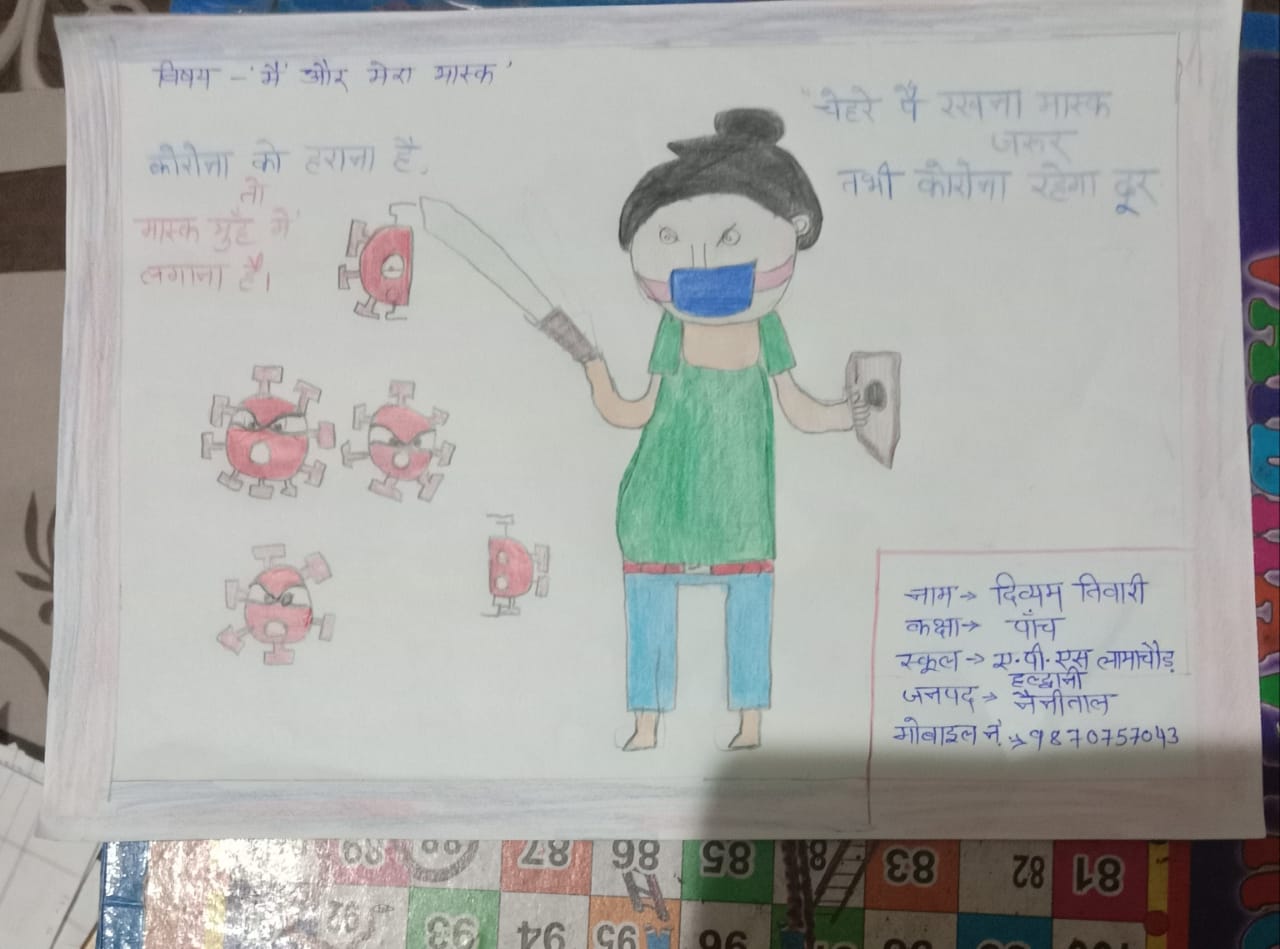 विषय - 'मैं और मेरा मास्क'
कोरोना को हराना है,
तो
मास्क मुँह में
लगाना है।
"चेहरे पै रखना मास्क
जरुर
तभी कोरोना रहेगा दूर
नाम → दिव्यम तिवारी
कक्षा → पाँच
स्कूल → ए.पी.एस लामाचौड़
हल्द्वानी
जनपद → नैनीताल
मोबाइल नं. → 9870757043
89 88 87 86 85 84 83 82 81
92 93 94 95 96